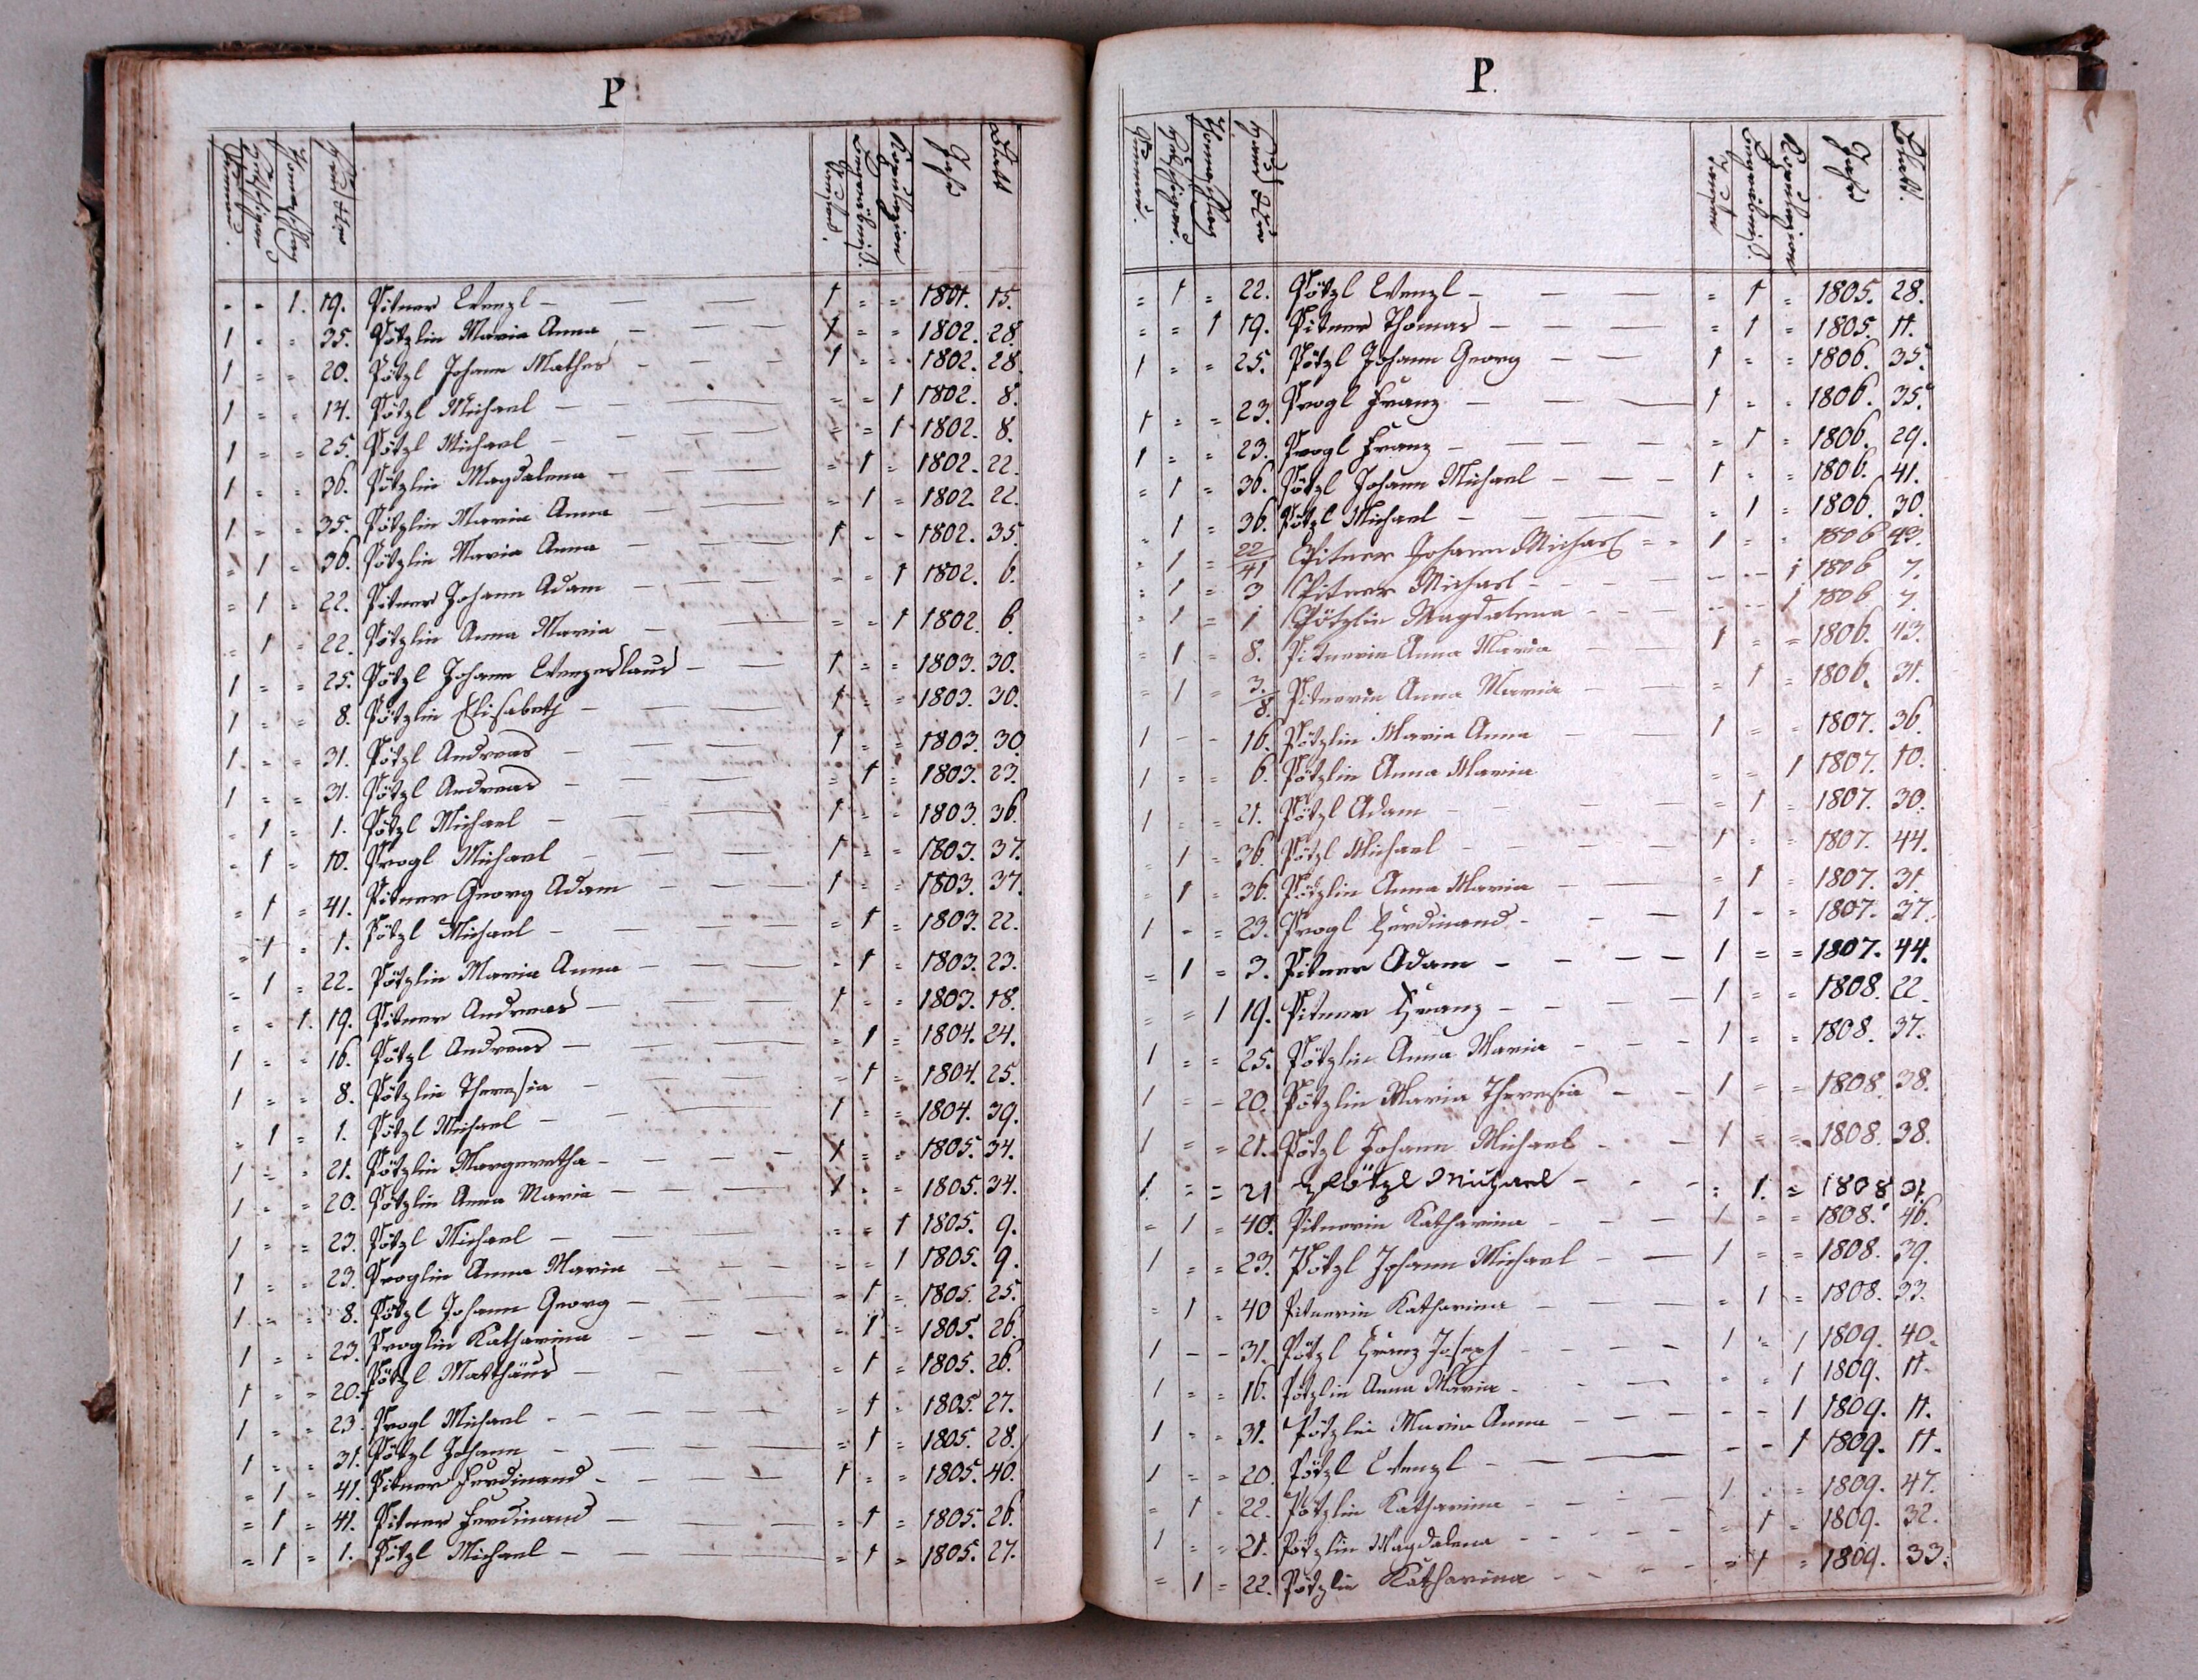 P
Haus Nro
Taufen.
Begräbniß.
Kopulazion
Jahr
Blatt
- - 1. 19. Pitner Wenzl - 1 = = 1801. 15.
1 - - 35. Pötzlin Maria Anna - 1 = = 1802. 28.
1 = = 20. Pötzl Johann Mathes - 1 = = 1802. 28.
1 = = 14. Pötzl Michael - = = 1 1802. 8.
1 = = 25. Pötzl Michael - = = 1 1802. 8.
1 = = 36. Pötzlin Magdalena - = 1 = 1802. 22.
1 - = 35. Pötzlin Maria Anna - = 1 = 1802. 22.
= 1 = 36. Pötzlin Maria Anna - 1 - - 1802. 35.
= 1 = 22. Pitner Johann Adam - = = 1 1802. 6.
= 1 = 22. Pötzlin Anna Maria - = = 1 1802. 6.
1 = = 25. Pötzl Johann Wenzeslaus - 1 = = 1803. 30.
1 = = 8. Pötzlin Elisabeth - 1 = = 1803. 30.
1 = = 31. Pötzl Andreas - 1 = = 1803. 30
1 = = 31. Pötzl Andreas - = 1 = 1803. 23.
= 1 = 1. Pötzl Michael - 1 = = 1803. 36.
= 1 = 10. Progl Michael - 1 = = 1803. 37.
= 1 = 41. Pitner Georg Adam - 1 = = 1803. 37.
= 1 = 1. Pötzl Michael - = 1 = 1803. 22.
= 1 = 22. Pötzlin Maria Anna - = 1 = 1803. 23.
= = 1. 19. Pitner Andreas - 1 = = 1803. 18.
1 = = 16. Pötzl Andreas - = 1 = 1804. 24.
1 = = 8. Pötzlin Theresia - = 1 = 1804. 25.
= 1 = 1. Pötzl Michael - 1 = = 1804. 39.
1 = = 21. Pötzlin Margeretha - 1 = = 1805. 34.
1 = = 20. Pötzlin Anna Maria - 1 = = 1805. 34.
1 = = 23. Pötzl Michael - = = 1 1805. 9.
1 = = 23. Proglin Anna Maria - = = 1 1805. 9.
1 = = 8. Pötzl Johann Georg - = 1 = 1805. 25.
1 = = 23. Proglin Katharina - = 1 = 1805. 26.
1 = = 20. Pötzl Matthäus - = 1 = 1805. 26.
1 = = 23. Progl Michael - = 1 = 1805. 27.
1 = = 31. Pötzl Johann - = 1 = 1805. 28.
= 1 = 41. Pitner Ferdinand - 1 = = 1805. 40.
= 1 = 41. Pitner Ferdinand - = 1 = 1805. 26.
= 1 = 1. Pötzl Michael - = 1 = 1805. 27.
P.
Haus Nro
Taufen
Begräbniß.
Kopulazion
Jahr
Blatt.
= 1 = 22. Pötzl Wenzl - = 1 = 1805. 28.
= = 1 19. Pitner Thomas - = 1 = 1805. 11.
1 = = 25. Pötzl Johann Georg - 1 = = 1806. 35.
1 = = 23. Progl Franz - 1 = = 1806. 35.
1 = = 23. Progl Franz - = 1 = 1806. 29.
= 1 = 36. Pötzl Johann Michael - 1 = = 1806. 41.
= 1 = 36. Pötzl Michael - = 1 = 1806. 30.
= 1 = 22/41 Pitner Johann Michael = = 1 = = 1806 43.
= 1 = 3 Pitner Michael - - - 1 1806 7.
= 1 = 1 Pötzlin Magdalena - - - 1 1806 7.
= 1 = 8. Pitnerin Anna Maria - 1 = = 1806. 43.
= 1 = 3./8. Pitnerin Anna Maria - = 1 = 1806. 31.
1 - - 16. Pötzlin Maria Anna - 1 = = 1807. 36.
1 = = 6. Pötzlin Anna Maria = = 1 1807. 10.
1 = = 21. Pötzl Adam - = 1 = 1807. 30.
= 1 = 36. Pötzl Michael - 1 = = 1807. 44.
= 1 = 36. Pötzlin Anna Maria - = 1 = 1807. 31.
1 - = 23. Progl Ferdinand - 1 - = 1807. 37.
= 1 = 3. Pitner Adam - 1 = = 1807. 44.
= = 1 19. Pitner Franz - 1 = = 1808. 22.
1 = = 25. Pötzlin Anna Maria - 1 = = 1808. 37.
1 = - 20. Pötzlin Maria Theresia - 1 = = 1808. 38.
1 = = 21. Pötzl Johann Michael - 1 = = 1808. 38.
1. = = 21 Pötzl Michael - = 1. = 1808 31.
= 1 = 40. Pitnerin Katharina - 1 = = 1808. 46.
1 = = 23. Pötzl Johann Michael - 1 = = 1808. 39.
= 1 = 40 Pitnerin Katharina - = 1 = 1808. 33.
1 - - 31. Pötzl Franz Joseph - 1 = 1 1809. 40.
1 = = 16. Pötzlin Anna Maria - = = 1 1809. 11.
1 = = 31. Pötzlin Maria Anna - - - 1 1809. 11.
1 = = 20. Pötzl Wenzl - - - 1 1809. 11.
= 1 = 22. Pötzlin Katharina - 1 = = 1809. 47.
1 = = 21. Pötzlin Magdalena - = 1 = 1809. 32.
= 1 = 22. Pötzlin Katharina - = 1 = 1809. 33.